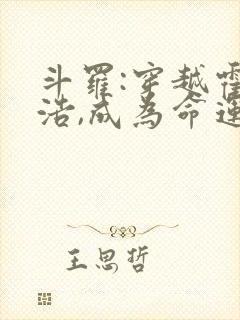 斗羅:穿越霍
浩,成為命運
王思哲